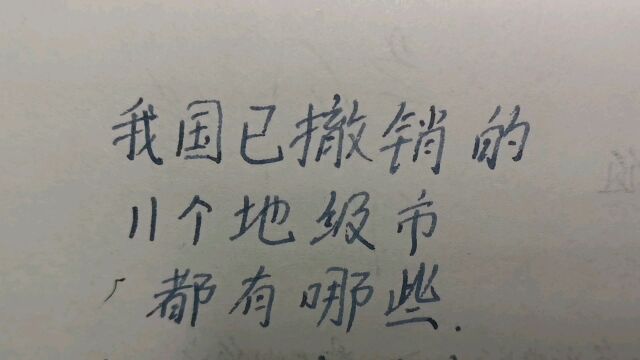 我国已撤销的
11个地级市
都有哪些.